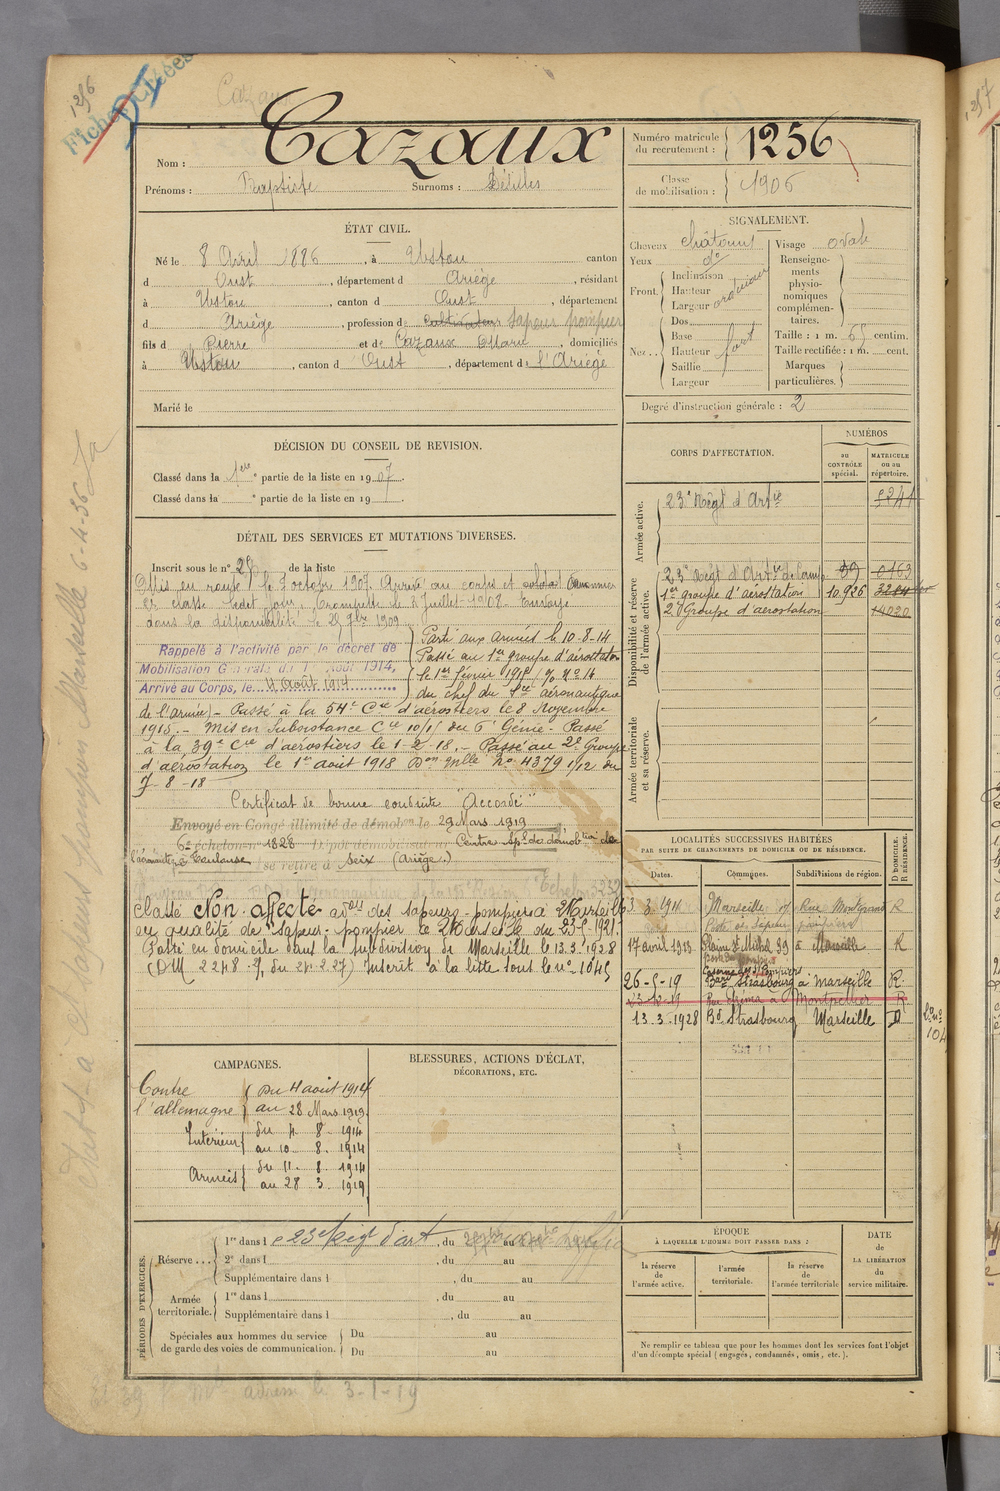 1256
Cazaux
Nom : Cazaux
Prénoms : Baptiste Surnoms : Délilles
Numéro matricule du recrutement : 1256
Classe de mobilisation : 1906
ÉTAT CIVIL.
Né le 8 Avril 1886, à Ustou canton
d Oust, département d Ariège, résidant
à Ustou, canton d Oust, département
d Ariège, profession de cultivateur Sapeur pompier
fils d Pierre et de Cazaux Marie, domiciliés
à Ustou, canton d Oust, département de l'Ariège
Marié le
SIGNALEMENT.
Cheveux châtains Visage ovale
Yeux do
Front. Inclinaison Hauteur Largeur ordinaire
Nez.. Dos Base Hauteur Saillie Largeur fort
Renseignements physionomiques complémentaires.
Taille : 1 m. 65 centim.
Taille rectifiée : 1 m. cent.
Marques particulières.
Degré d'instruction générale : 2
DÉCISION DU CONSEIL DE REVISION.
Classé dans la 1ère partie de la liste en 1907.
Classé dans la e partie de la liste en 19
DÉTAIL DES SERVICES ET MUTATIONS DIVERSES.
Inscrit sous le n° 28 de la liste
Mis en route le 3 octobre 1907. Arrivé au corps et soldat Canonnier
2e classe ledit jour, Trompette le Juillet 1908. Envoyé
dans la disponibilité le 25 7bre 1909
Rappelé à l'activité par le décret de
Mobilisation Générale du 1 Août 1914,
Arrivé au Corps, le 4 Août 1914
Parti aux Armées le 10-8-14
Passé au 1er groupe d'aérostation
le 1er février 1915
du chef du Sce aéronautique
de l'armée) - Passé à la 54e Cie d'aérostiers le 8 Novembre
1915. - Mis en Subsistance Cie 10/1 du 6e Génie - Passé
à la 39e Cie d'aérostiers le 1-2-18. - Passé au 2e Groupe
d'aérostation le 1er août 1918 Don Mlle No 4379 1/12 du
7-8-18
Certificat de bonne conduite "Accordé"
Envoyé en Congé illimité de démobon le 29 Mars 1919
6e échelon n° 1828 Dépôt démobilisateur Centre Spl de démobtion de
l'aéronautique Toulouse se retire à Seix (Ariège.)
Classé Non affecté des sapeurs-pompiers à Marseille
en qualité de Sapeur-pompier le Mars et le du 23-5-1921.
Passé en domicile dans la subdivision de Marseille le 13.3.1928
Inscrit à la liste sous le n° 1045
CORPS D'AFFECTATION.
NUMÉROS
au CONTRÔLE spécial.
MATRICULE ou au répertoire.
Armée active.
23e Régt d'Artie 5241
Disponibilité et réserve de l'armée active.
23e Régt d'Artie de Camp 39 0163
1er groupe d'aérostation 10.926 3284
2e Groupe d'aérostation 14020
Armée territoriale et sa réserve.
LOCALITÉS SUCCESSIVES HABITÉES
PAR SUITE DE CHANGEMENTS DE DOMICILE OU DE RÉSIDENCE.
Dates. Communes. Subdivisions de région. D DOMICILE. R RÉSIDENCE.
3. 3. 1911 Marseille Rue Montgrand R
Poste des Sapeurs pompiers
17 avril 1913 Plaine St Michel 39 à Marseille R
Caserne des S. Pompiers
26-5-19 Bard Strasbourg à Marseille R
23-12-19 Rue à Montpellier R
13.3-1928 Bd Strasbourg Marseille D
CAMPAGNES.
Contre l'allemagne du 4 août 1914 au 28 Mars 1919.
Intérieur du 4. 8. 1914 au 10. 8. 1914
Armées du 11. 8. 1914 au 28 3. 1919
BLESSURES, ACTIONS D'ÉCLAT,
DÉCORATIONS, ETC.
PÉRIODES D'EXERCICES.
Réserve... 1re dans le 23e Régt d'art, du au
2e dans l , du au
Supplémentaire dans l , du au
Armée territoriale. 1re dans l , du au
Supplémentaire dans l , du au
Spéciales aux hommes du service de garde des voies de communication. Du au
Du au
ÉPOQUE
À LAQUELLE L'HOMME DOIT PASSER DANS :
la réserve de l'armée active.
l'armée territoriale.
la réserve de l'armée territoriale
DATE de LA LIBÉRATION du service militaire.
Ne remplir ce tableau que pour les hommes dont les services font l'objet
d'un décompte spécial (engagés, condamnés, omis, etc.).
3-1-19
1257